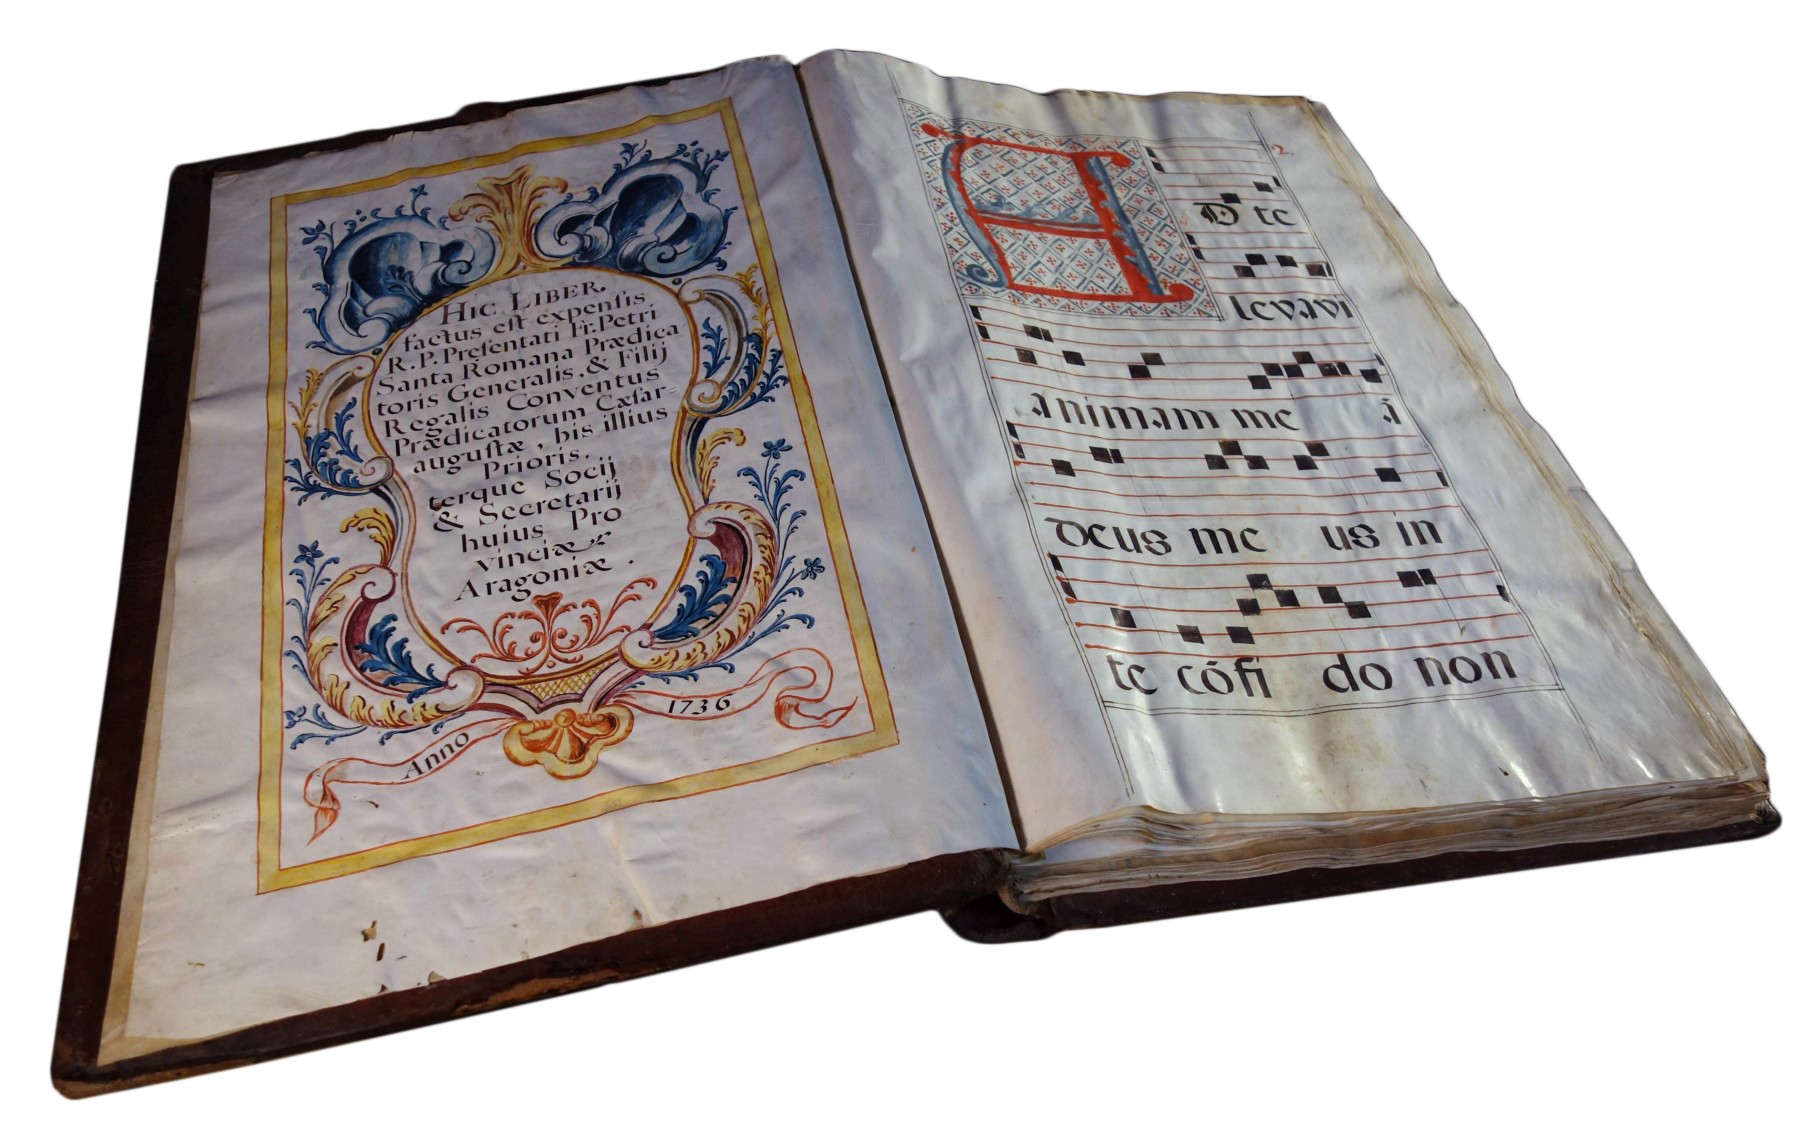 HIC LIBER
factus est expensis
R.P. Presentati Fr. Petri
Santa Romana Prædica
toris Generalis, & Filij
Regalis Conventus
Prædicatorum Cæsar-
augustæ, bis illius
Prioris,
terque Socij
& Secretarij
huius Pro
vinciæ
Aragoniæ.
Anno 1736
2.
AD te
levavi
animam me ā
deus me us in
te cōfi do non